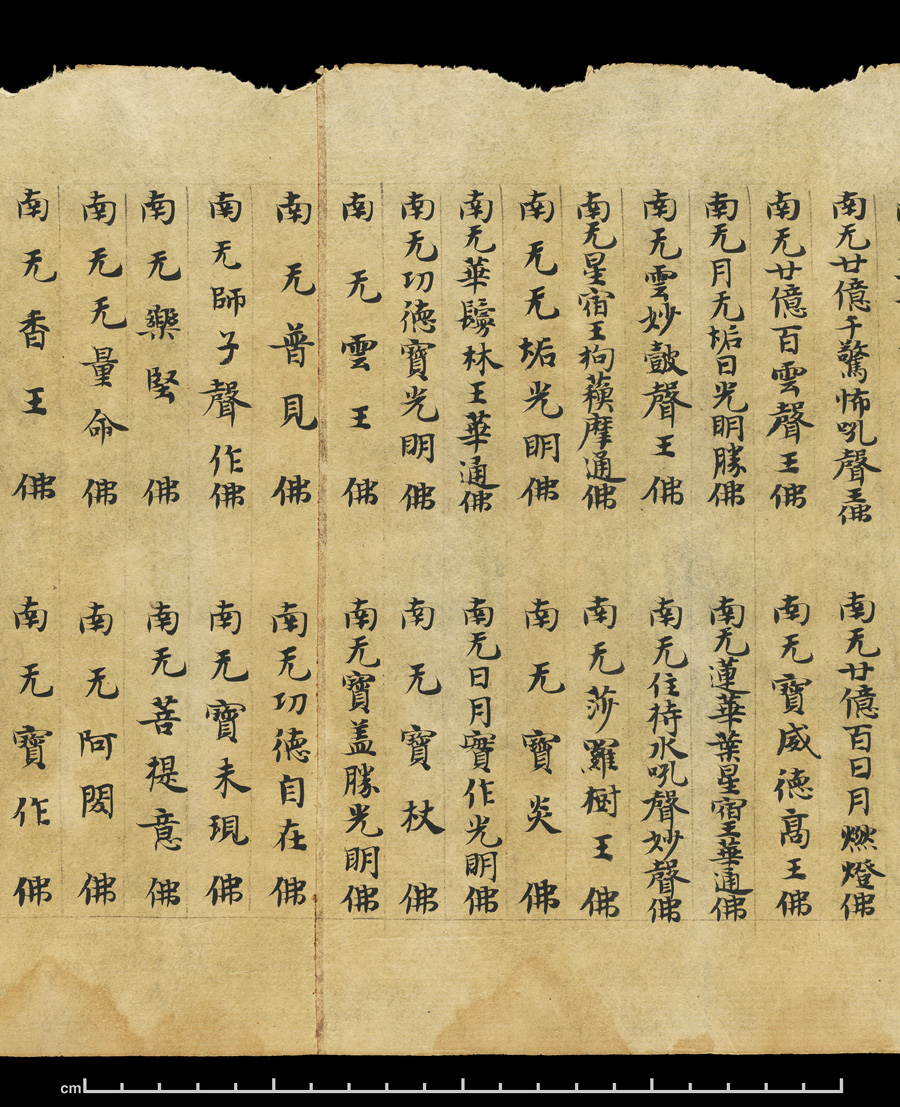 南无廿億千驚怖吼聲王佛
南无廿億百日月燃燈佛
南无廿億百雲聲王佛
南无寶威德髙王佛
南无月无垢日光明勝佛
南无蓮華葉星宿王華通佛
南无雲妙皷聲王佛
南无住持水吼聲妙聲佛
南无星宿王拘蘓摩通佛
南无莎羅樹王佛
南无无垢光明佛
南无寶炎佛
南无華鬘林王華通佛
南无日月寶作光明佛
南无功德寶光明佛
南无寶杖佛
南无雲王佛
南无寶盖勝光明佛
南无普見佛
南无功德自在佛
南无師子聲作佛
南无寶未現佛
南无樂堅佛
南无菩提意佛
南无无量命佛
南无阿閦佛
南无香王佛
南无寶作佛
cm